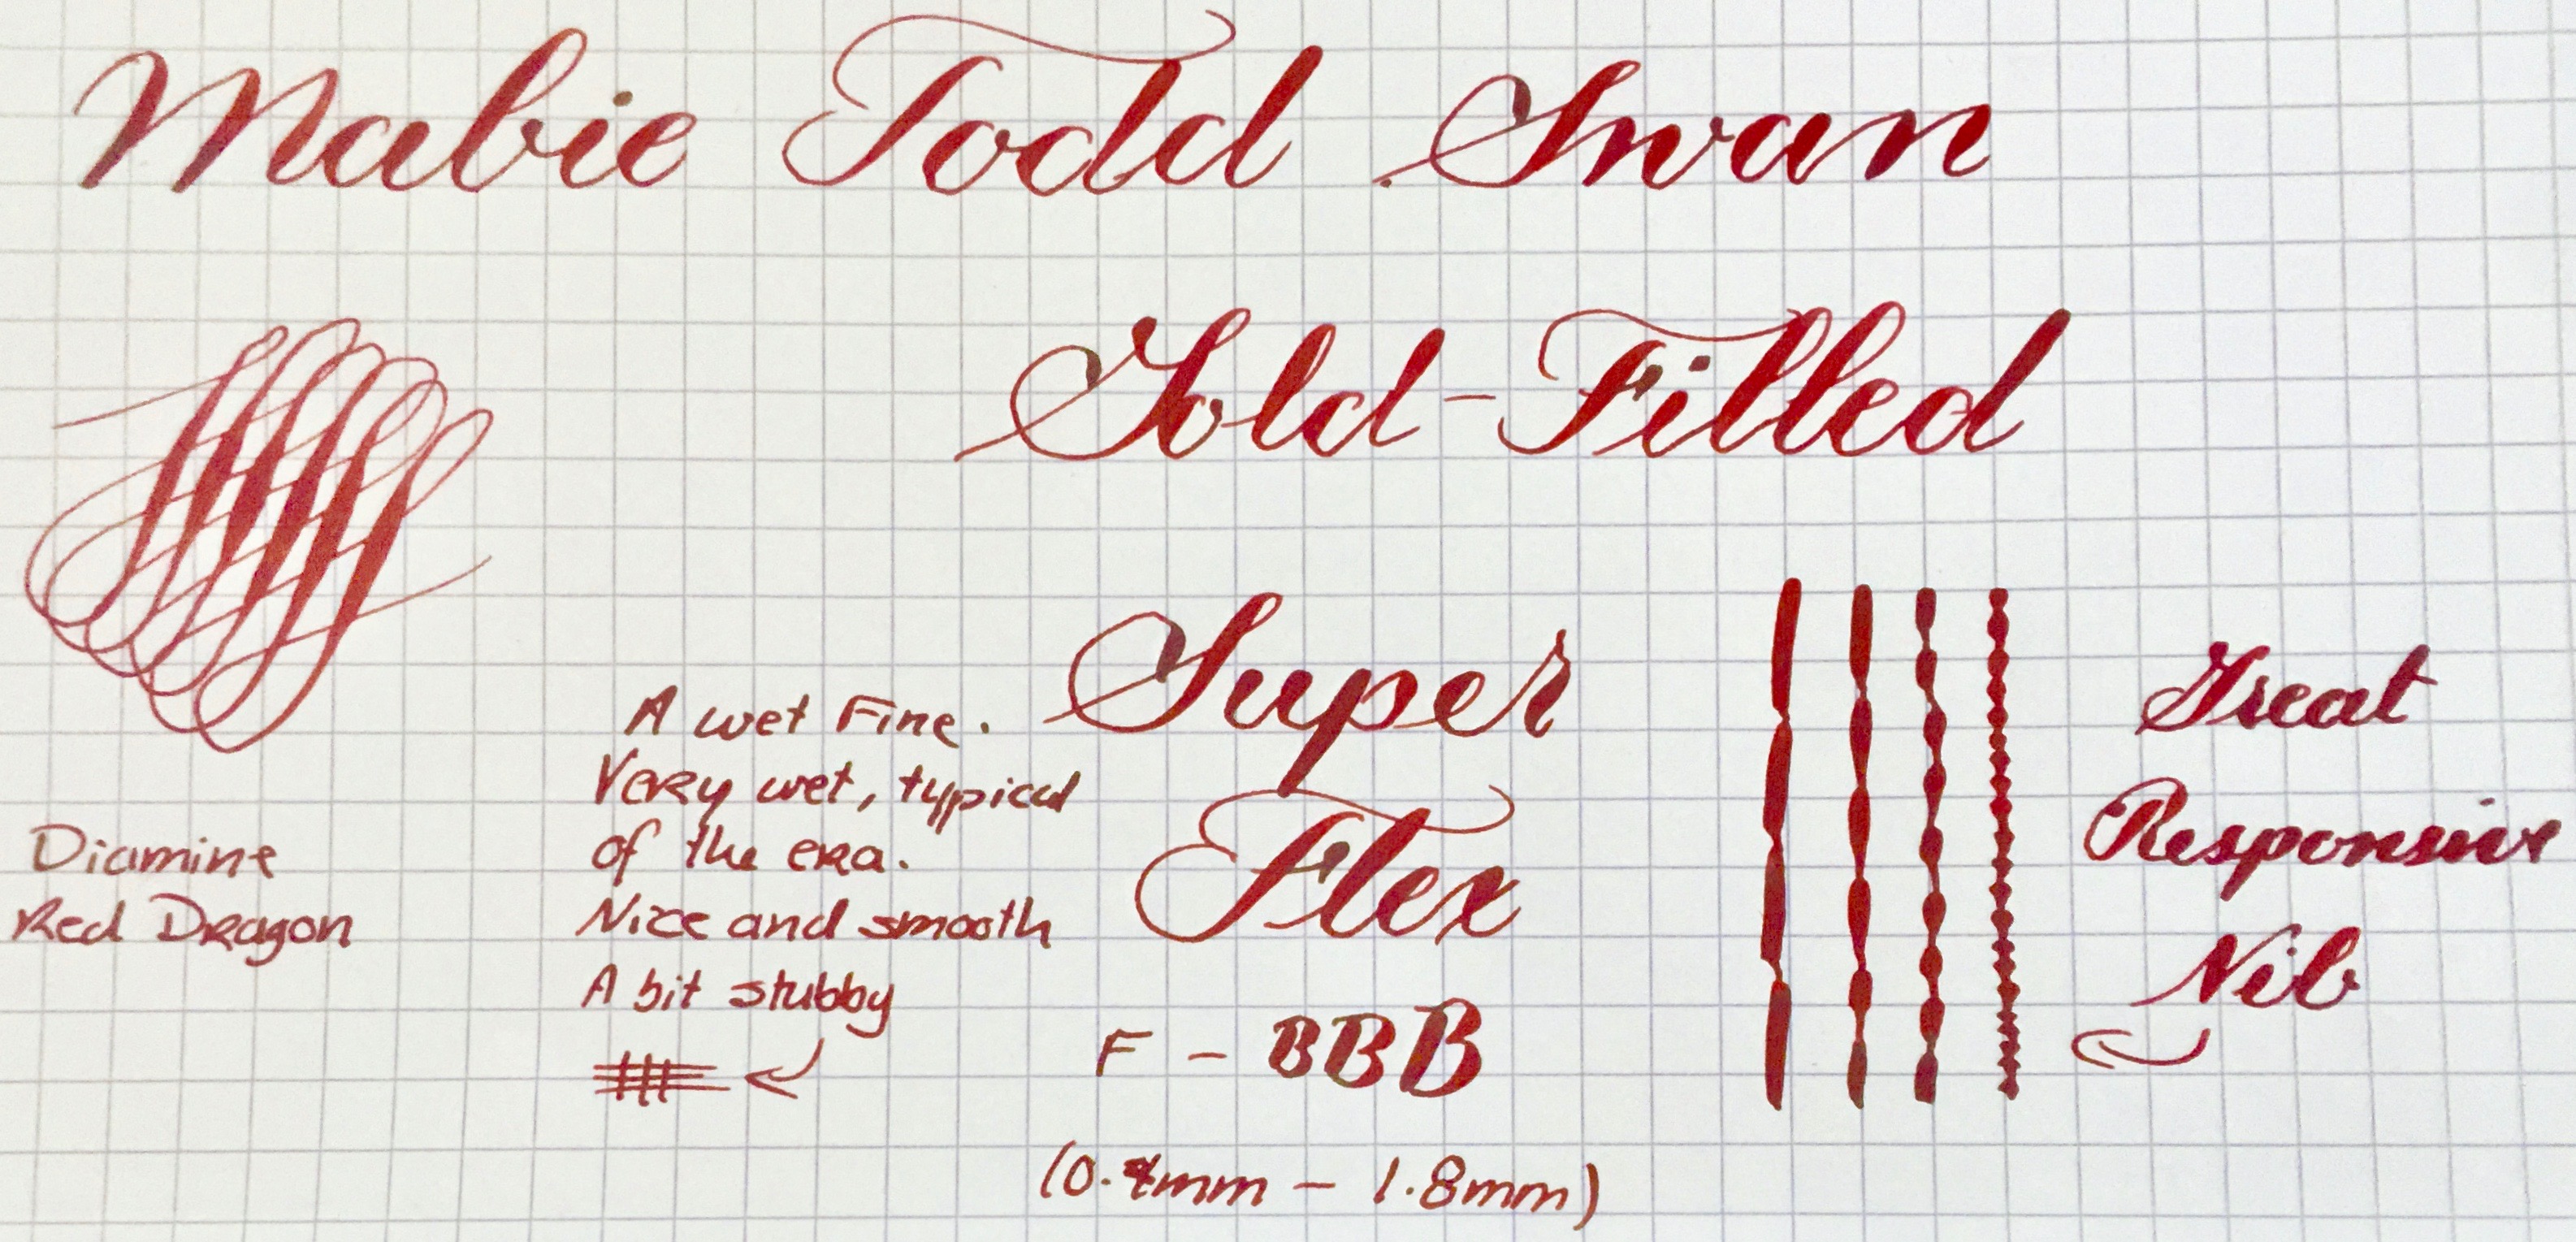 Mabie Todd Swan
Gold-Filled
Super
Flex
F - BBB
(0.4mm - 1.8mm)
A wet Fine.
Very wet, typical
of the era.
Nice and smooth
A bit stubby
Diamine
Red Dragon
Great
Responsive
Nib